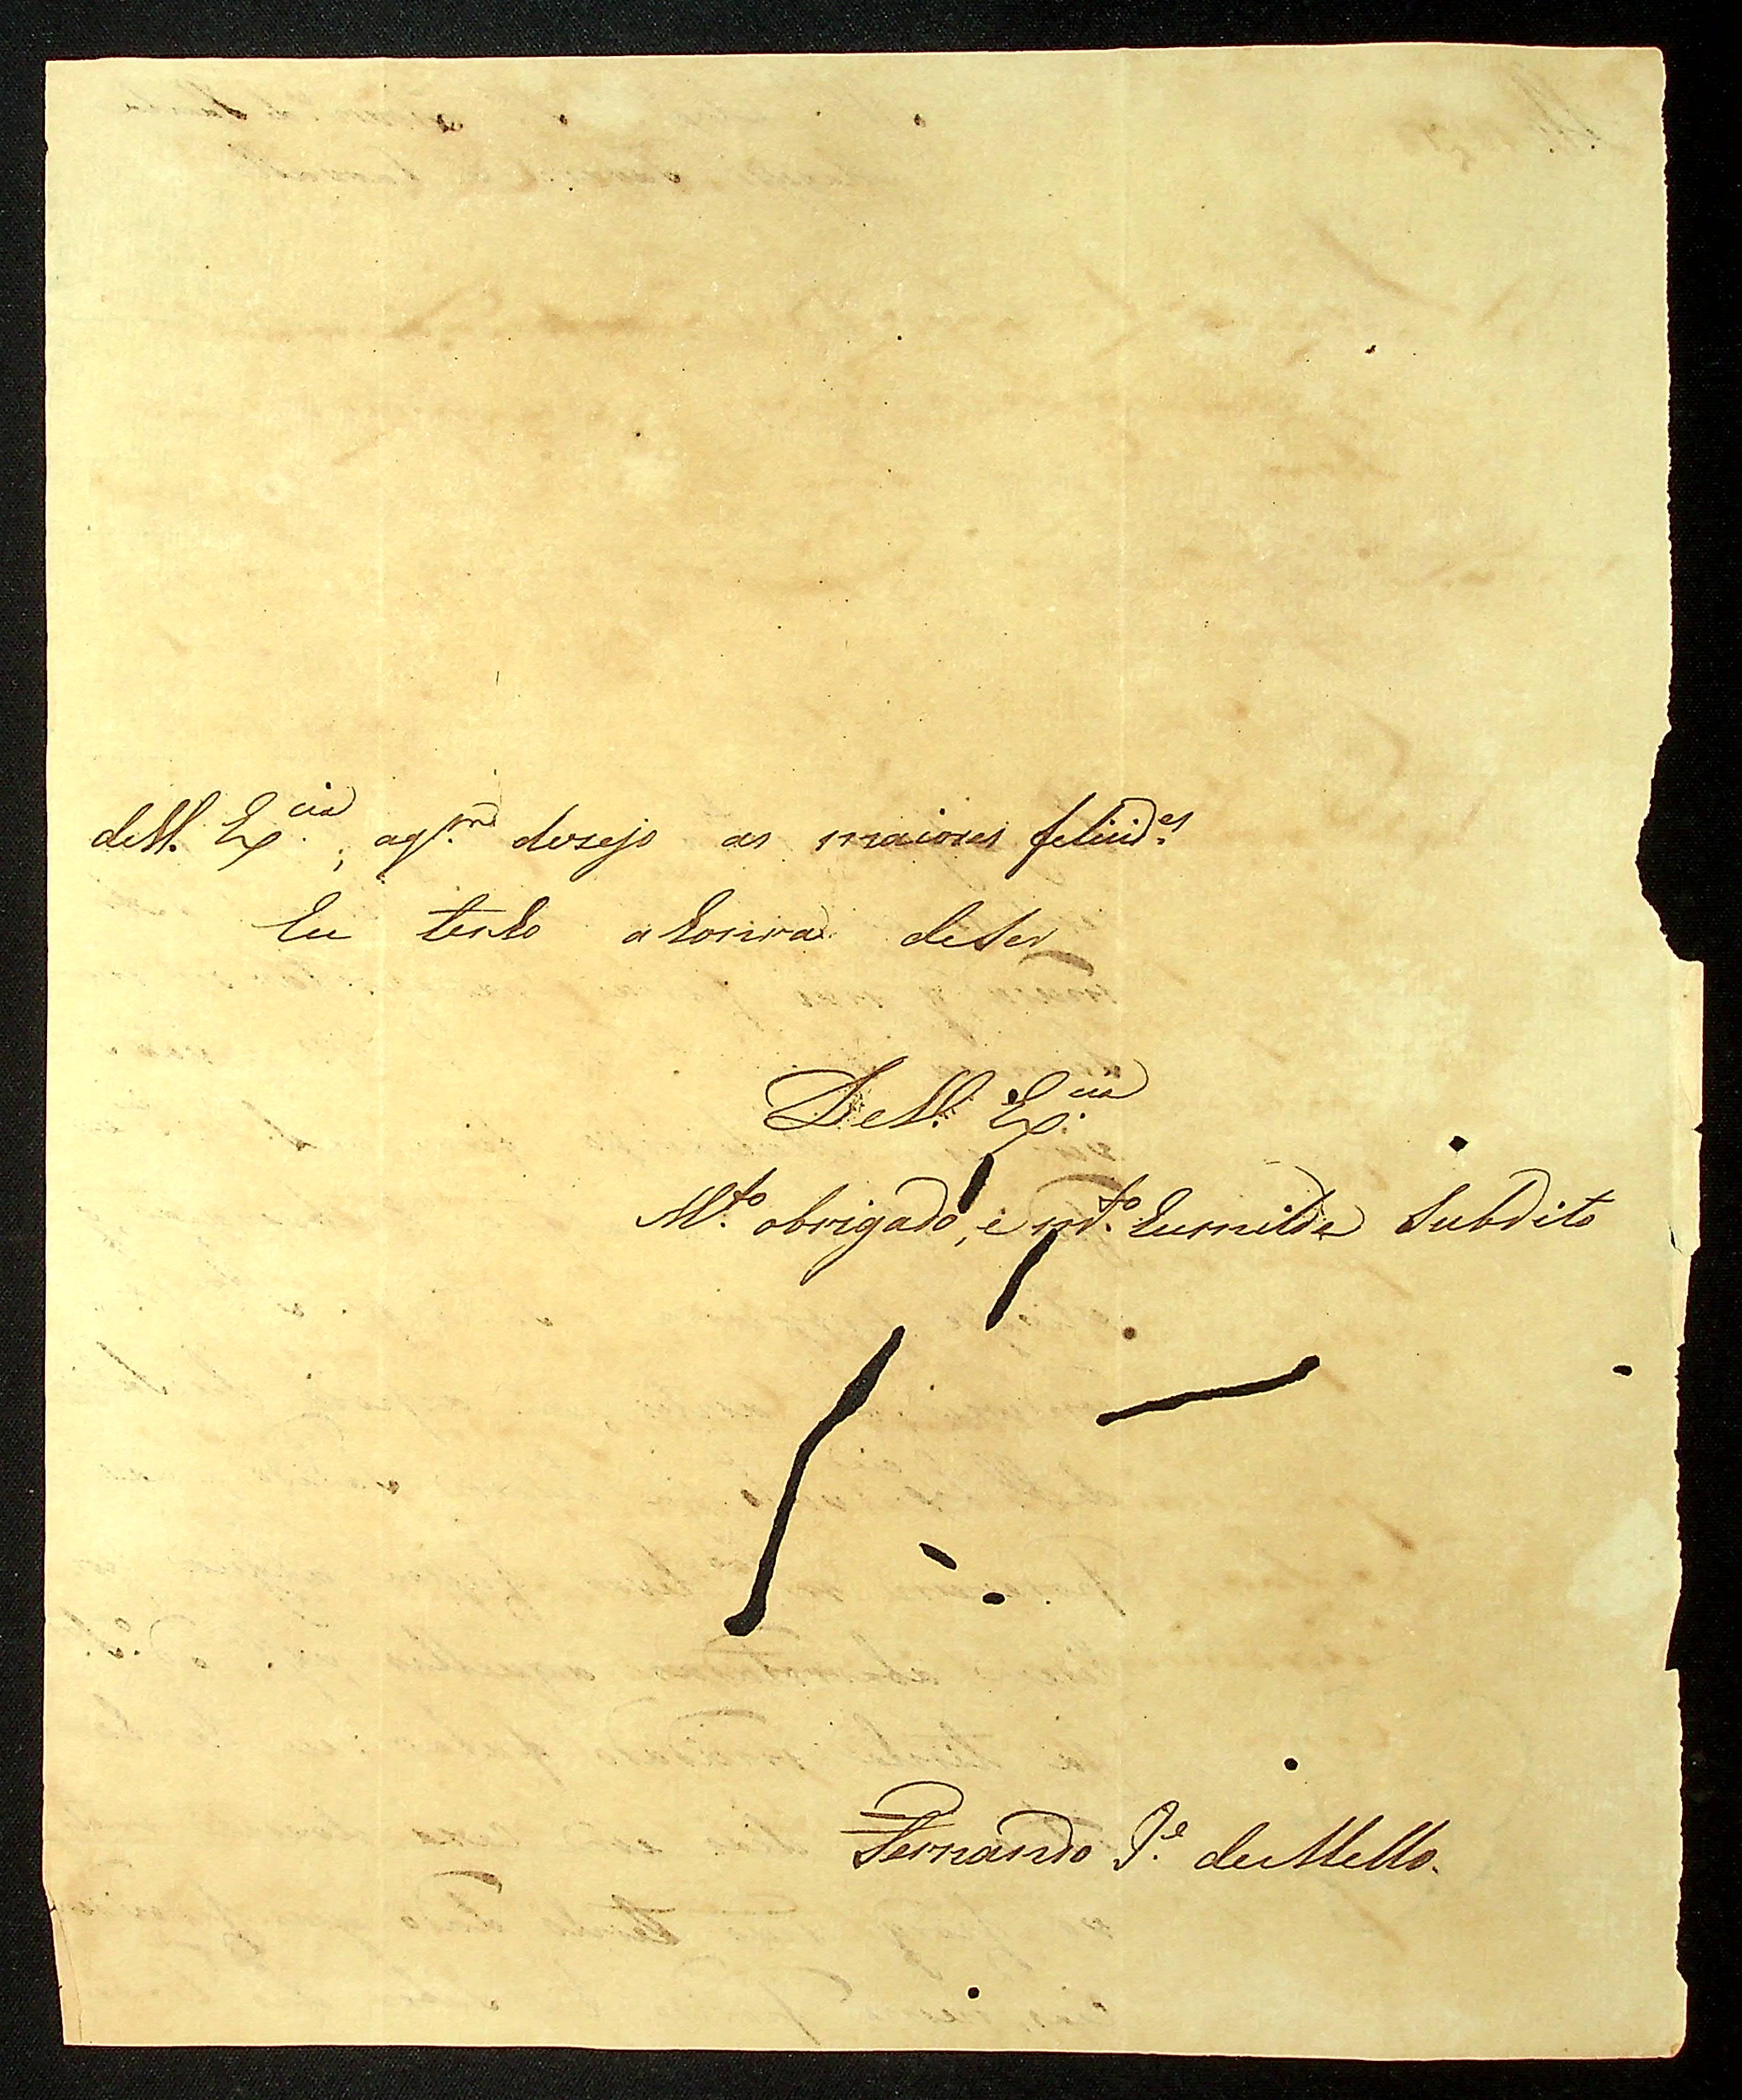 deV. Ex.cia, aq.m desejo as maiores felicid.es
Eu tenho ahonra deser
DeV. Ex.cia
M.to obrigado, e m.to humilde Subdito
Fernando J.e de Mello.